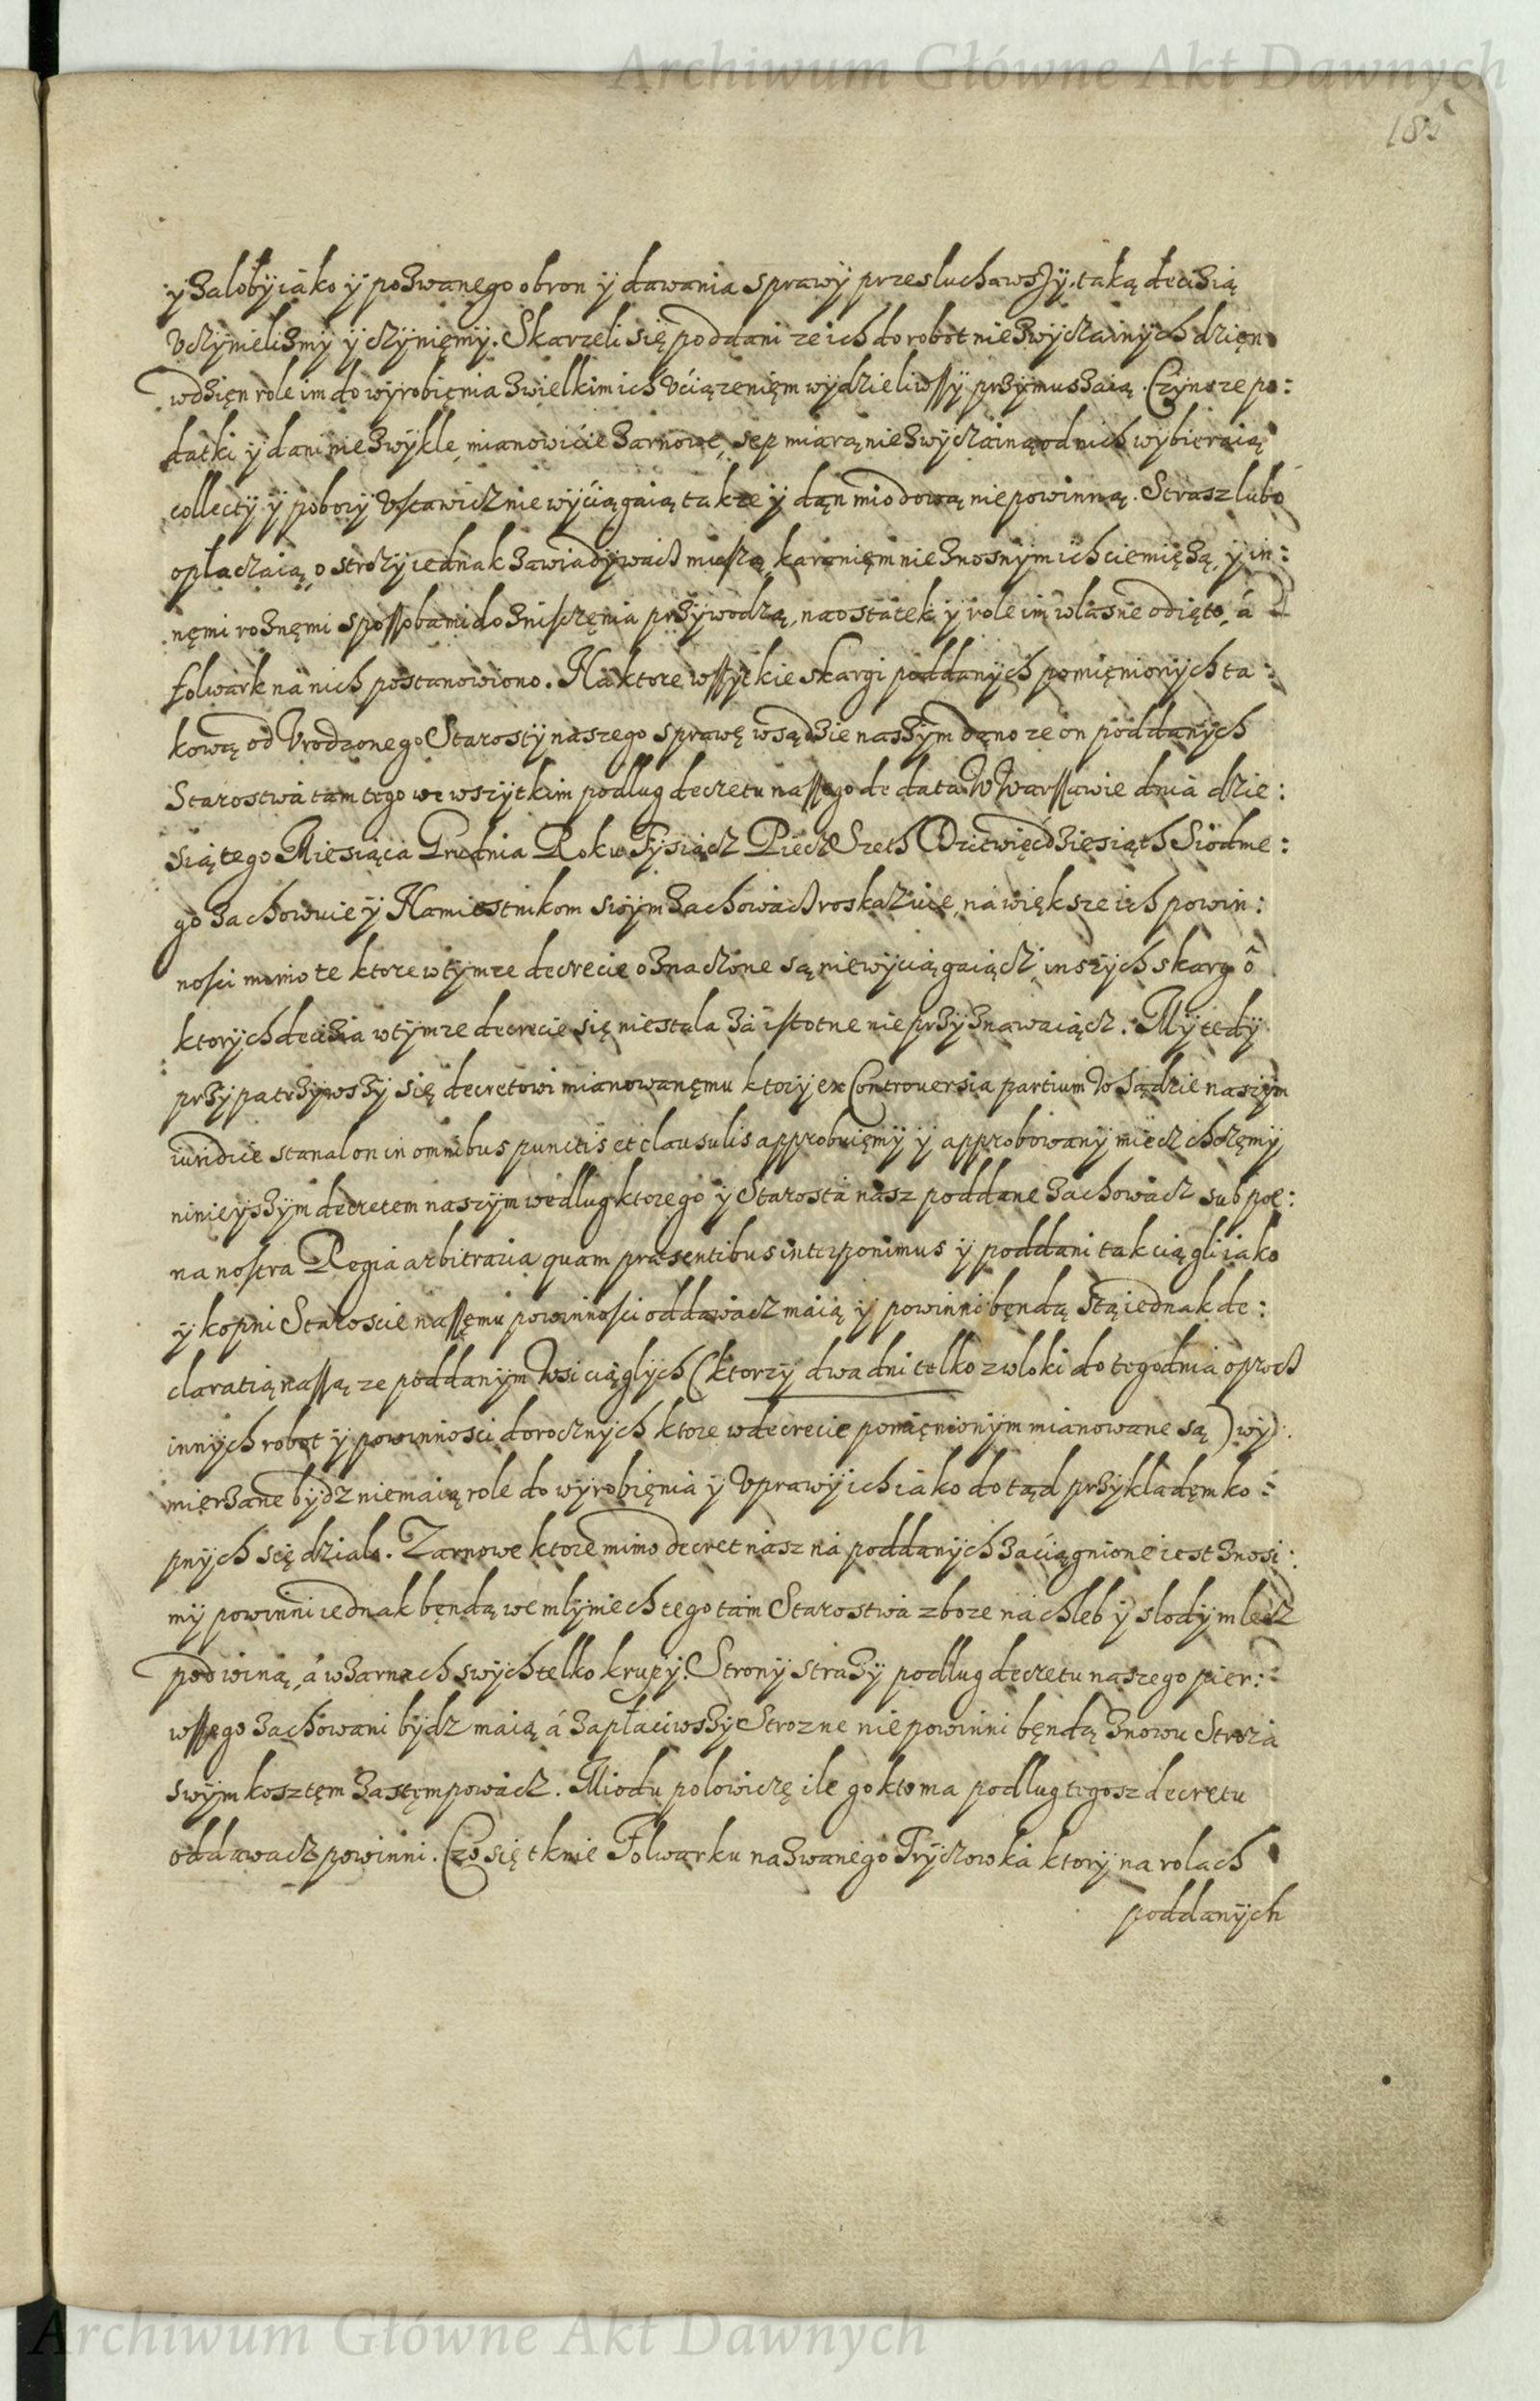 Archiwum Główne Akt Dawnych
y załoby iako y pozwanego obron y dawania sprawy przesłuchawszy, taką decizią
Vczynielizmy y czyniemy. Skarzeli się poddani ze ich do robot niezwyczainych dzięn
wdzięn role im do wyrobięnia zwielkim ich vciązenięm wydzieliwssy przymuszaią. Czynsze po:
datki y dani niezwykle, mianowićie zarnowe, sep miarą niezwyczainą od nich wybieraią
collecty y pobory vstawicznie wyćiągaią takze y dąn miodową niepowinną. Strasz lubo
opłaczaią, o strozy iednak zawiadywacz muszą, karanięm nieznosnym ich ciemięzą, y in:
nęmi roznęmi spossobami do zniszczęnia przywodzą, na ostatek y role im własne odięto, á
folwark na nich postanowiono. Na ktore wssytkie skargi poddanych pomięnionych ta:
kową od Vrodzonego Starosty naszego sprawę w sądzie naszym dano ze on poddanych
Starostwa tamtego we wszytkim podlug decretu nassego de data W Warssawie dnia dzie:
siątego Miesiąca Grudnia Roku Tysiącz Piecz Szeth Dziewięcdziesiąth Siodme:
go zachowuie y Namiestnikom swym zachowacz roskazuie, na większe ich powin:
nosci mimo te ktore w tymze decrecie oznaczone są niewyciągaiącz, inszych skarg o
ktorych decizia w tymze decrecie się niestala za istotne nie przyznawaiącz. My tedy
przypatrzywszy się decretowi mianowanęmu ktory ex Controuersia partium W Sądzie naszym
iuridice stanal on in omnibus punctis et clausulis approbuięmy y approbowany miecz chczęmy
ninieyszym decretem naszym wedlug ktorego y Starosta nasz poddane zachowacz sub poe:
na nostra Regia arbitraria quam præsentibus interponimus y poddani tak ciągli iako
y kopni Staroscie nassęmu powinnosci oddawacz maią y powinni bęndą Stą iednak de:
claratią nassą ze poddanym Wsi ciąglych (ktorzy dwa dni telko z wloki do tegodnia oprocz
innych robot y powinnosci dorocznych ktore w decrecie pomięnionym mianowane są) wy:
mierzane bydz niemaią role do wyrobięnia y Vprawy ich iako dotąd przykladęm ko:
pnych się dzialo. Zarnowe ktore mimo decret nasz na poddanych zaciągnione iest znosi:
my powinni iednak bęndą we mlyniech tego tam Starostwa zboze na chleb y slody mlecz
pod winą, á w zarnach swych telko krupy. Strony strazy podlug decretu naszego pier:
wssego zachowani bydz maią á zapłaciwszy Strozne nie powinni bęndą znowu Stroza
swym kosztęm zastęmpowacz. Miodu polowiczę ile go kto ma podlug tegosz decretu
oddawacz powinni. Czo się tknie Folwarku nazwanego Tryczowka ktory na rolach
poddanych
Archiwum Główne Akt Dawnych